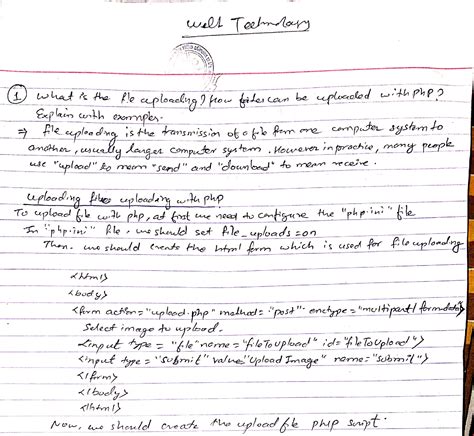 Web Technology
① What is the file uploading? How files can be uploaded with php?
Explain with example.
⇒ File uploading is the transmission of a file from one computer system to
another, usually larger computer system. However in practice, many people
use "upload" to mean "send" and "download" to mean receive.
uploading files uploading with php
To upload file with php, at first we need to configure the "php.ini" file
In "php.ini" file, we should set file_uploads = on
Then, we should create the html form which is used for file uploading
<html>
<body>
<form action="upload.php" method="post" enctype="multipart/formdata">
Select image to upload.
<input type = "file" name="fileToUpload" id="fileToUpload">
<input type = "submit" value "Upload Image" name="submit">
</form>
</body>
</html>
Now, we should create the upload file php script.